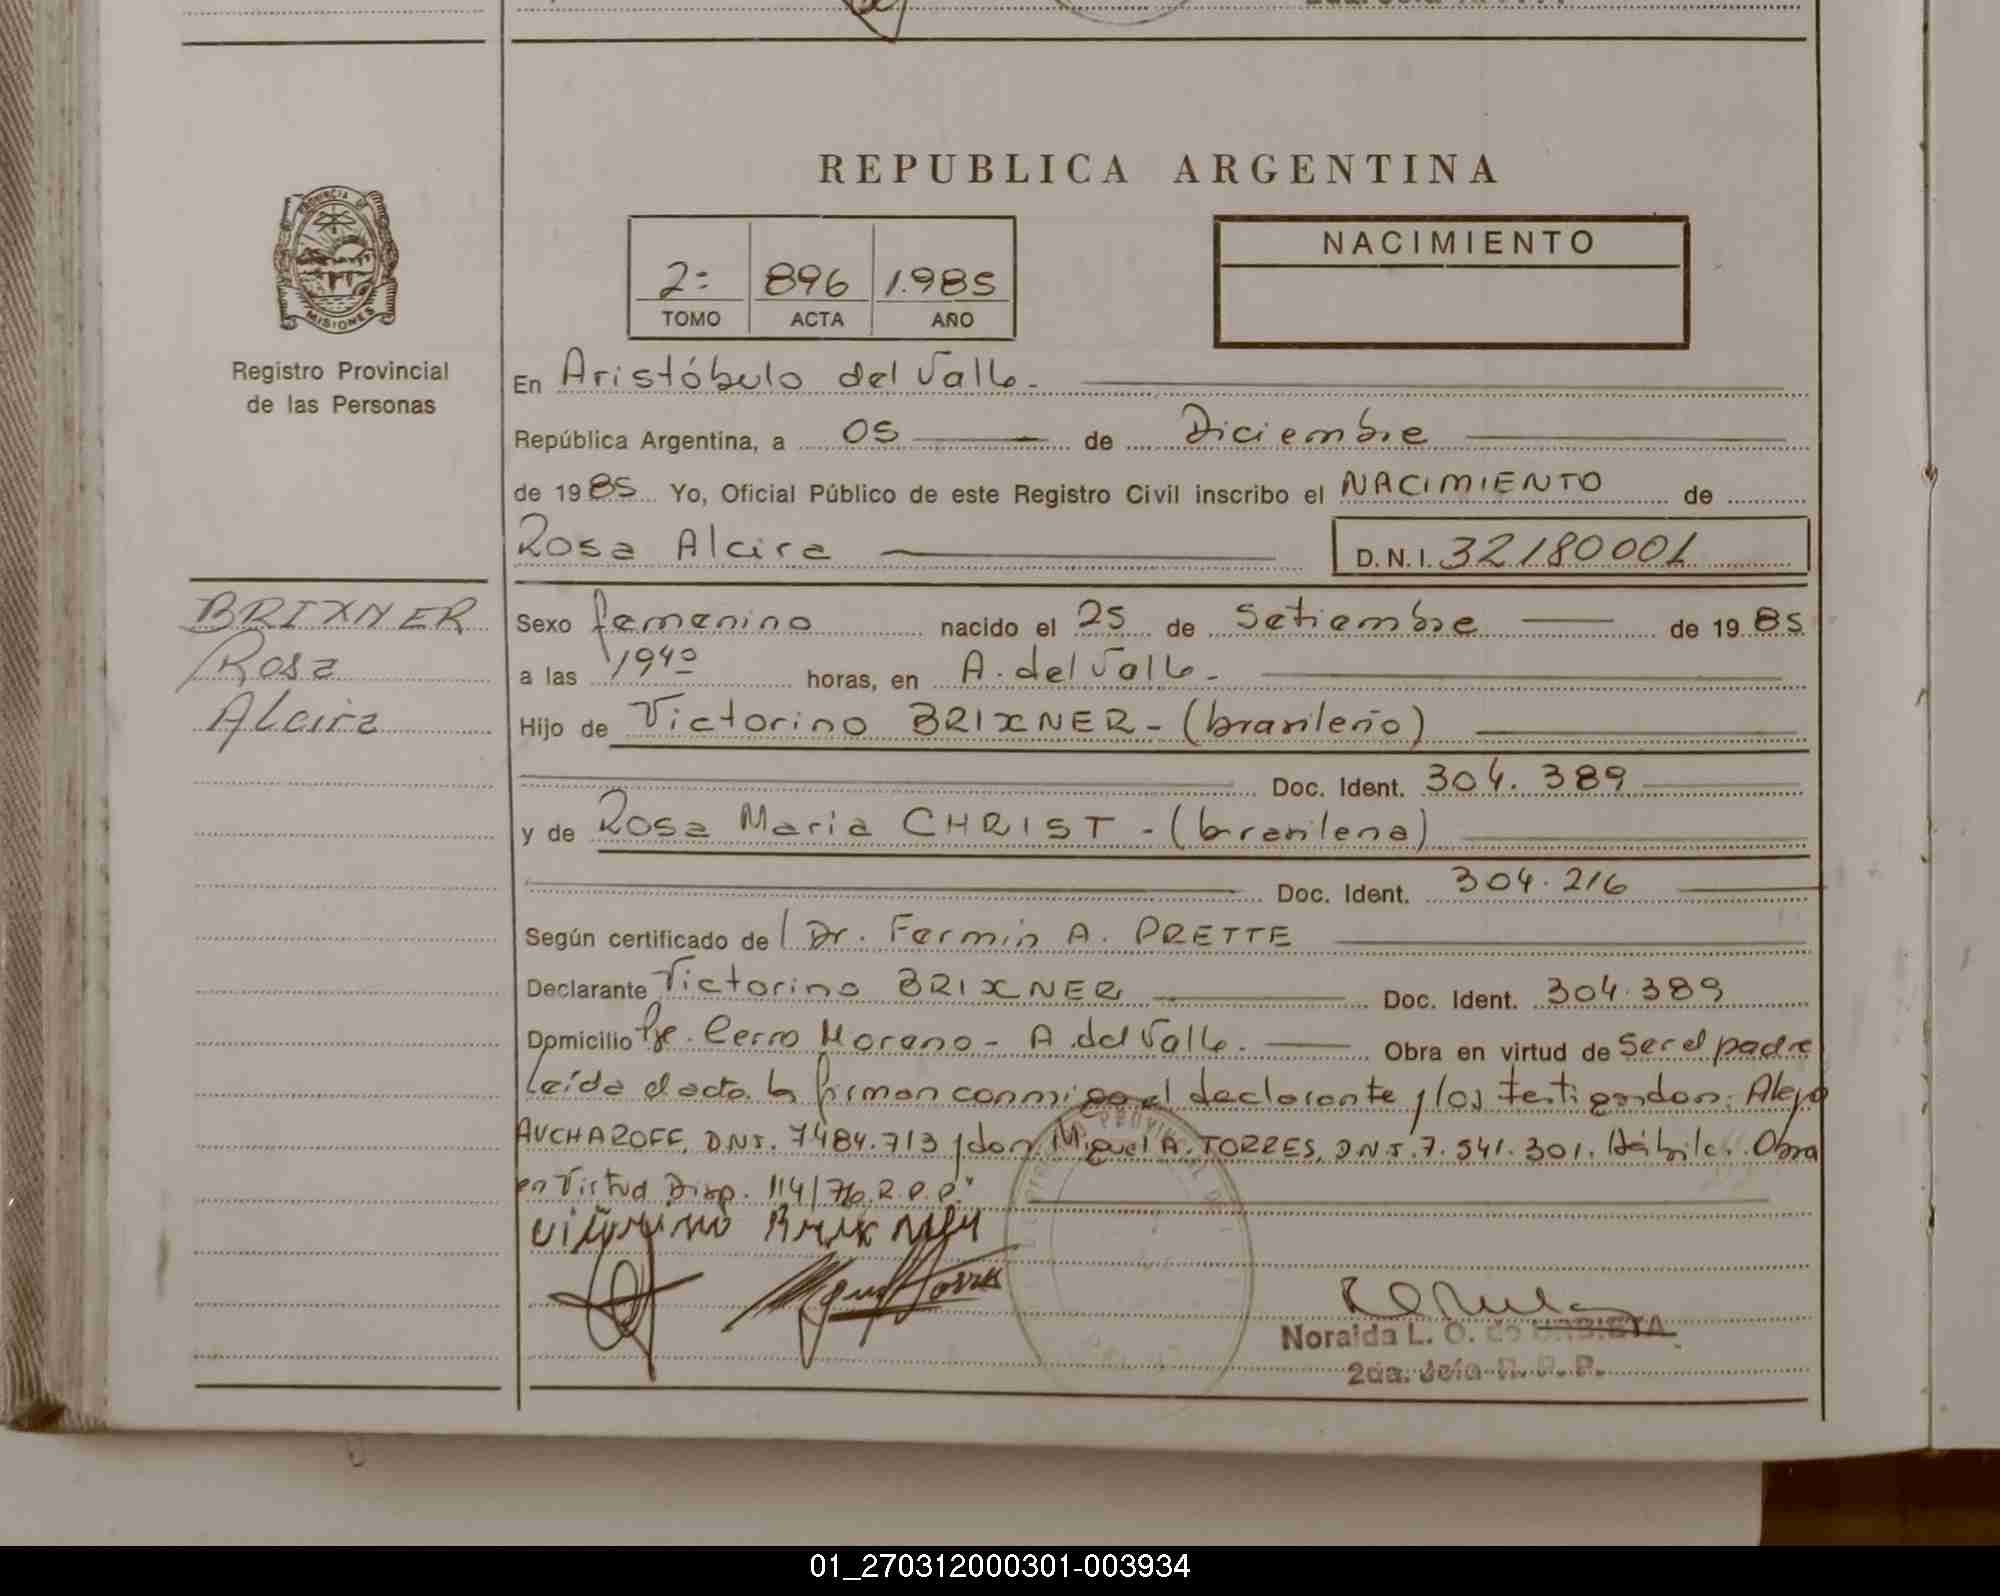 REPUBLICA ARGENTINA
PROVINCIA DE
MISIONES
Registro Provincial
de las Personas
2º 896 1.985
TOMO ACTA AÑO
NACIMIENTO
En Aristóbulo del Valle.
República Argentina, a 05 de Diciembre
de 1985 Yo, Oficial Público de este Registro Civil inscribo el NACIMIENTO de
Rosa Alcira D.N.I. 32180001
BRIXNER
Rosa
Alcira
Sexo femenino nacido el 25 de Setiembre de 1985
a las 19⁴⁰ horas, en A. del Valle.
Hijo de Victorino BRIXNER - (brasileño)
Doc. Ident. 304.389
y de Rosa Maria CHRIST - (brasilena)
Doc. Ident. 304.216
Según certificado de Dr. Fermin A. PRETTE
Declarante Victorino BRIXNER Doc. Ident. 304.389
Domicilio Pje. Cerro Moreno - A. del Valle. Obra en virtud de Ser el padre
Leída el acta la firman conmigo el declarante y los testigos don: Alejo
AUCHAROFF, D.N.I. 7484.713 y don Miguel A. TORRES, D.N.I. 7.541.301. Hábiles. Obra
en Virtud Disp. 114/76. R.P.P."
victorino Brixner
Miguel Torres
Noraida L. O. de URBIETA
2da. Jefa R. P. P.
01_270312000301-003934